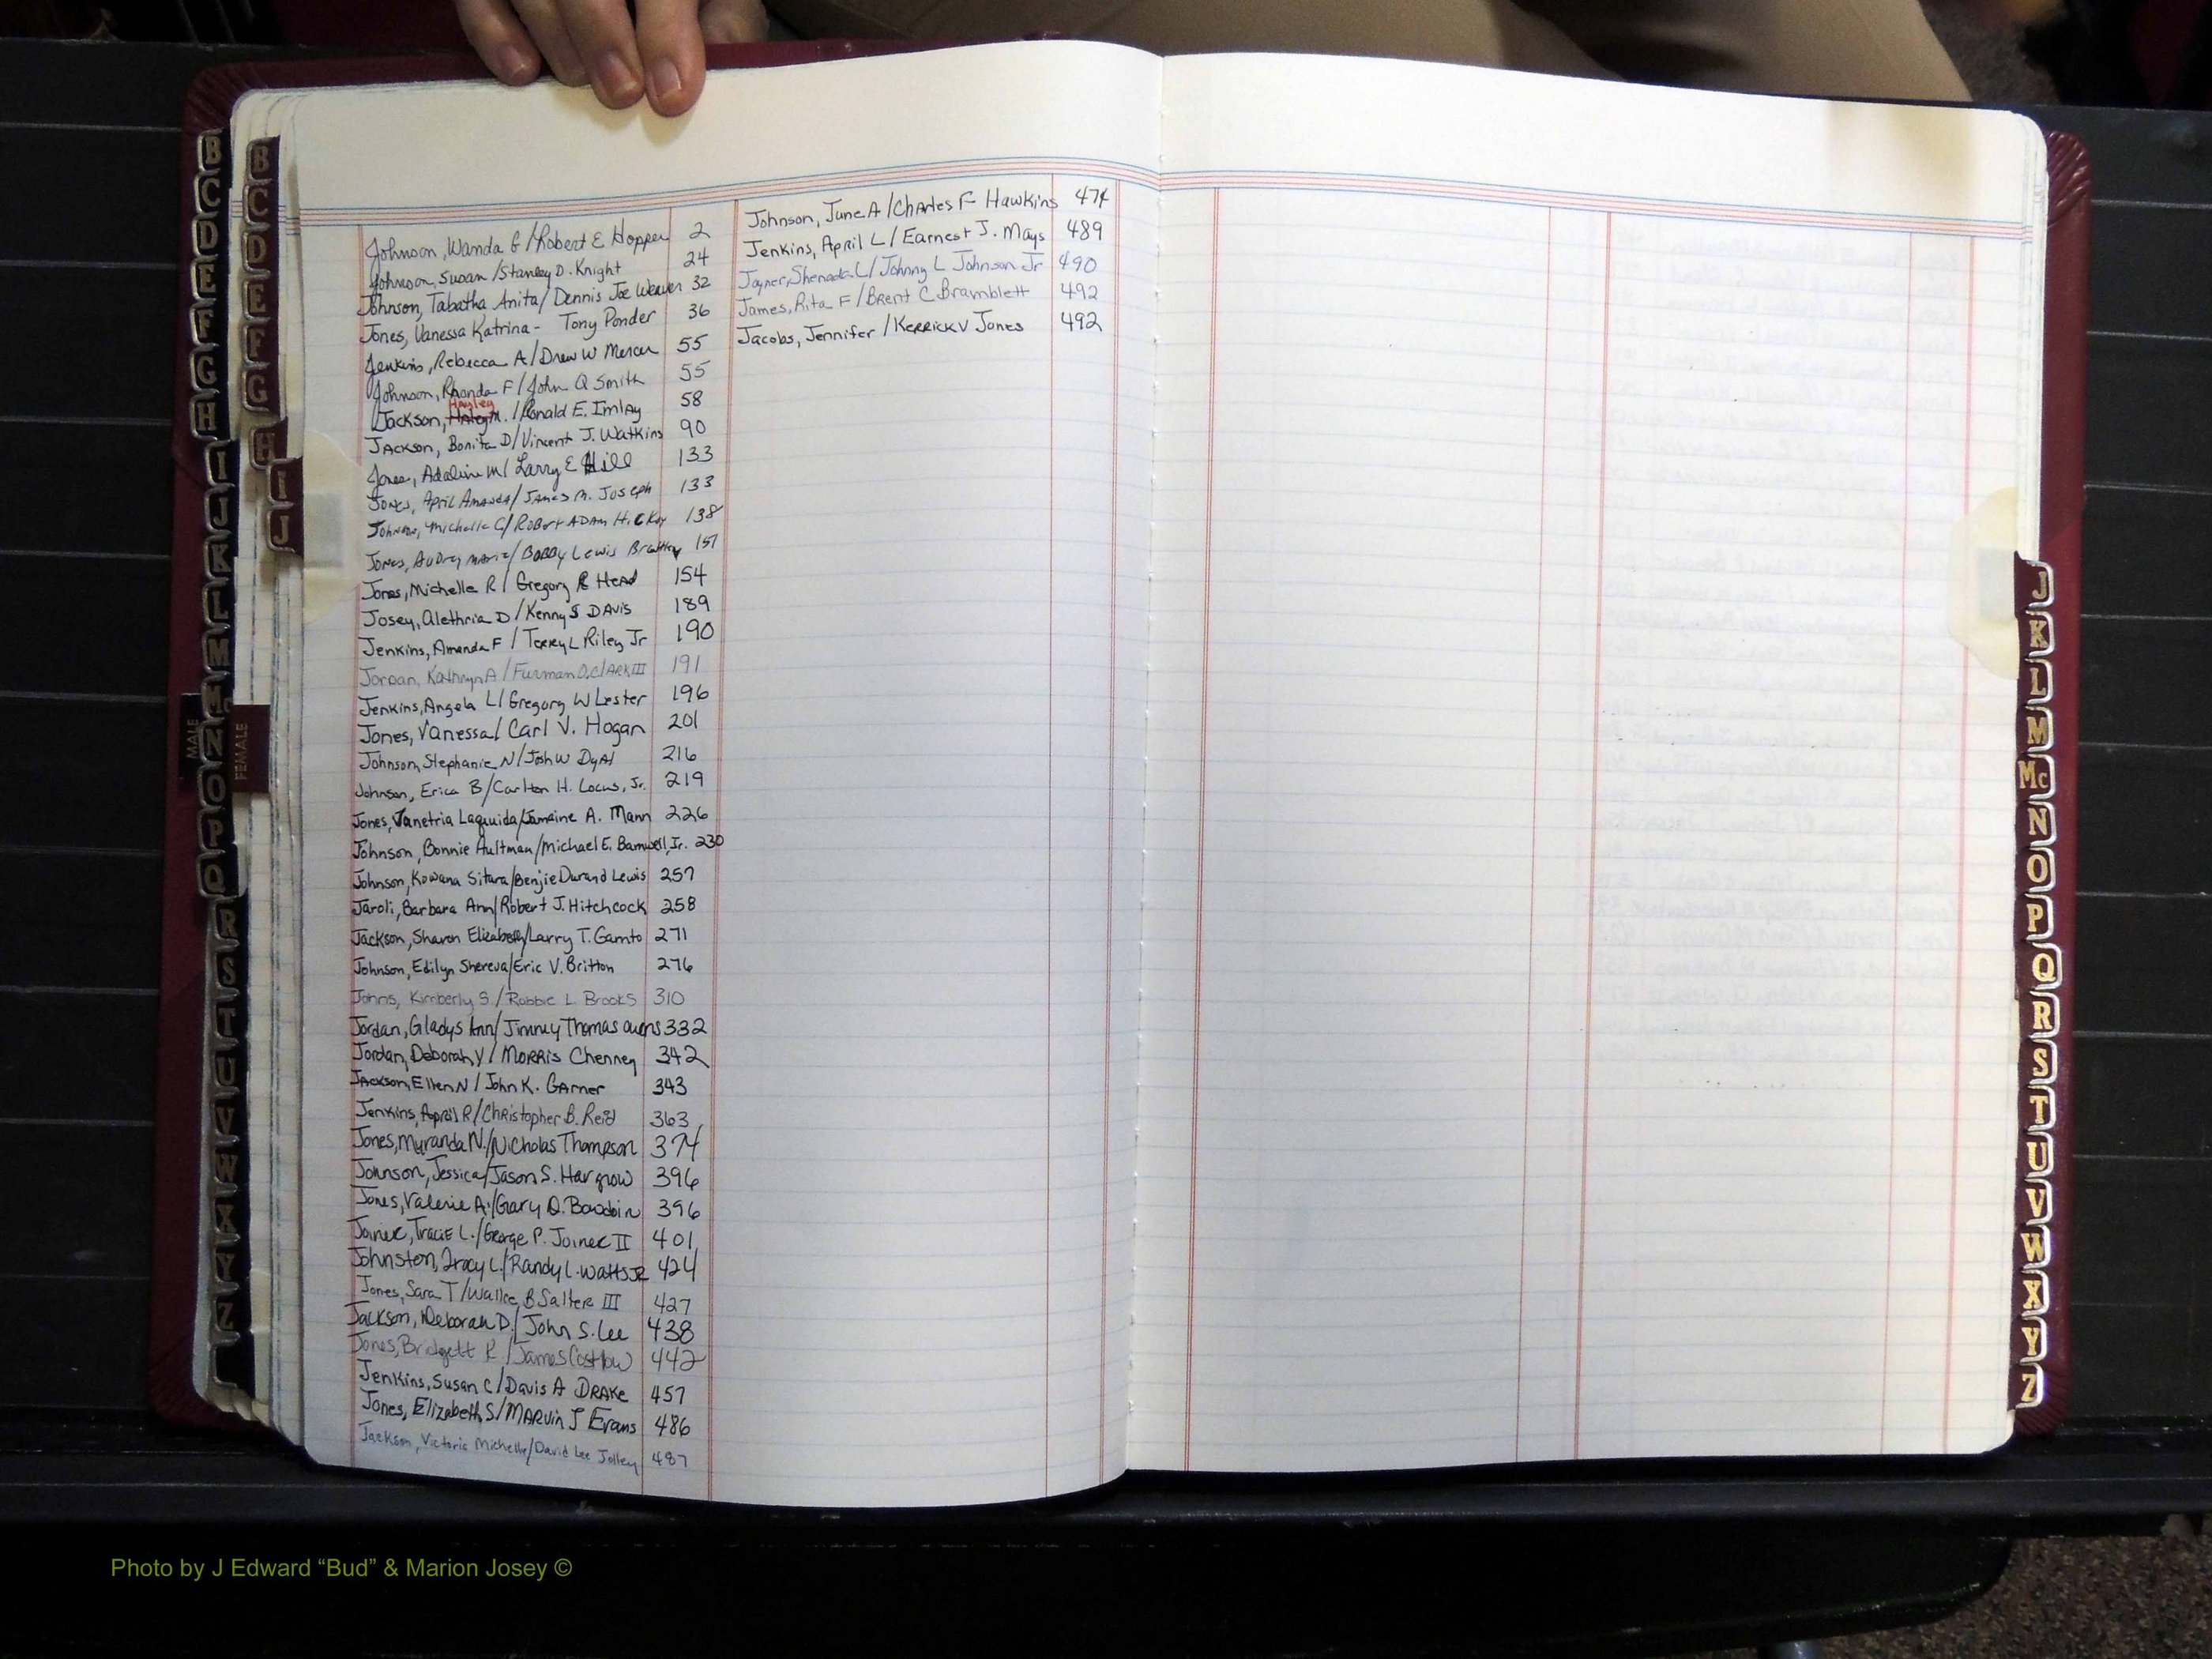 Johnson, Wanda G / Robert E Hopper 2
Johnson, Susan / Stanley D. Knight 24
Johnson, Tabatha Anita / Dennis Joe Weaver 32
Jones, Vanessa Katrina - Tony Ponder 36
Jenkins, Rebecca A / Drew W Mercer 55
Johnson, Rhonda F / John Q Smith 55
Hayley
Jackson, M. / Ronald E. Imlay 58
Jackson, Bonita D / Vincent J. Watkins 90
Jones, Adaline M / Larry E Hill 133
Jones, April Amanda / James M. Joseph 133
Johnson, Michelle C / Robert Adam Hickox 138
Jones, Audrey Marie / Bobby Lewis 151
Jones, Michelle R / Gregory R Head 154
Josey, Alethria D / Kenny S Davis 189
Jenkins, Amanda F / Terry L Riley Jr 190
Jordan, Kathryn A / Furman D. Clark III 191
Jenkins, Angela L / Gregory W Lester 196
Jones, Vanessa / Carl V. Hogan 201
Johnson, Stephanie N / Josh W Dyal 216
Johnson, Erica B / Carlton H. Locus, Jr. 219
Jones, Vanetria Laquuida / Jamaine A. Mann 226
Johnson, Bonnie Aultman / Michael E. Barnwell, Jr. 230
Johnson, Kowana Sitara / Benjie Durand Lewis 257
Jaroli, Barbara Ann / Robert J. Hitchcock 258
Jackson, Sharon Elizabeth / Larry T. Gamto 271
Johnson, Edilyn Shereva / Eric V. Britton 276
Johns, Kimberly S. / Robbie L. Brooks 310
Jordan, Gladys Ann / Jimmy Thomas Owens 332
Jordan, Deborah Y / Morris Chenney 342
Jackson, Ellen N / John K. Garner 343
Jenkins, April R / Christopher B. Reid 363
Jones, Myranda N. / Nicholas Thompson 374
Johnson, Jessica / Jason S. Hargrow 396
Jones, Valerie A. / Gary D. Baudoin 396
Joiner, Tracie L. / George P. Joiner II 401
Johnston, Tracy L. / Randy L. Watts Jr 424
Jones, Sara T / Wallce B Salter III 427
Jackson, Deborah D. / John S. Lee 438
Jones, Bridgett R. / James Costlow 442
Jenkins, Susan C / Davis A Drake 457
Jones, Elizabeth S / Marvin J Evans 486
Jackson, Victoria Michelle / David Lee Jolley 487
Johnson, June A / Charles F Hawkins 474
Jenkins, April L / Earnest J. Mays 489
Joyner, Sheneda L / Johnny L Johnson Jr 490
James, Rita F / Brent C Bramblett 492
Jacobs, Jennifer / Kerrick V Jones 492
B
C
D
E
F
G
H
I
J
K
L
M
Mc
N
O
P
Q
R
S
T
U
V
W
X
Y
Z
MALE
B
C
D
E
F
G
H
I
J
FEMALE
J
K
L
M
Mc
N
O
P
Q
R
S
T
U
V
W
X
Y
Z
Photo by J Edward “Bud” & Marion Josey ©